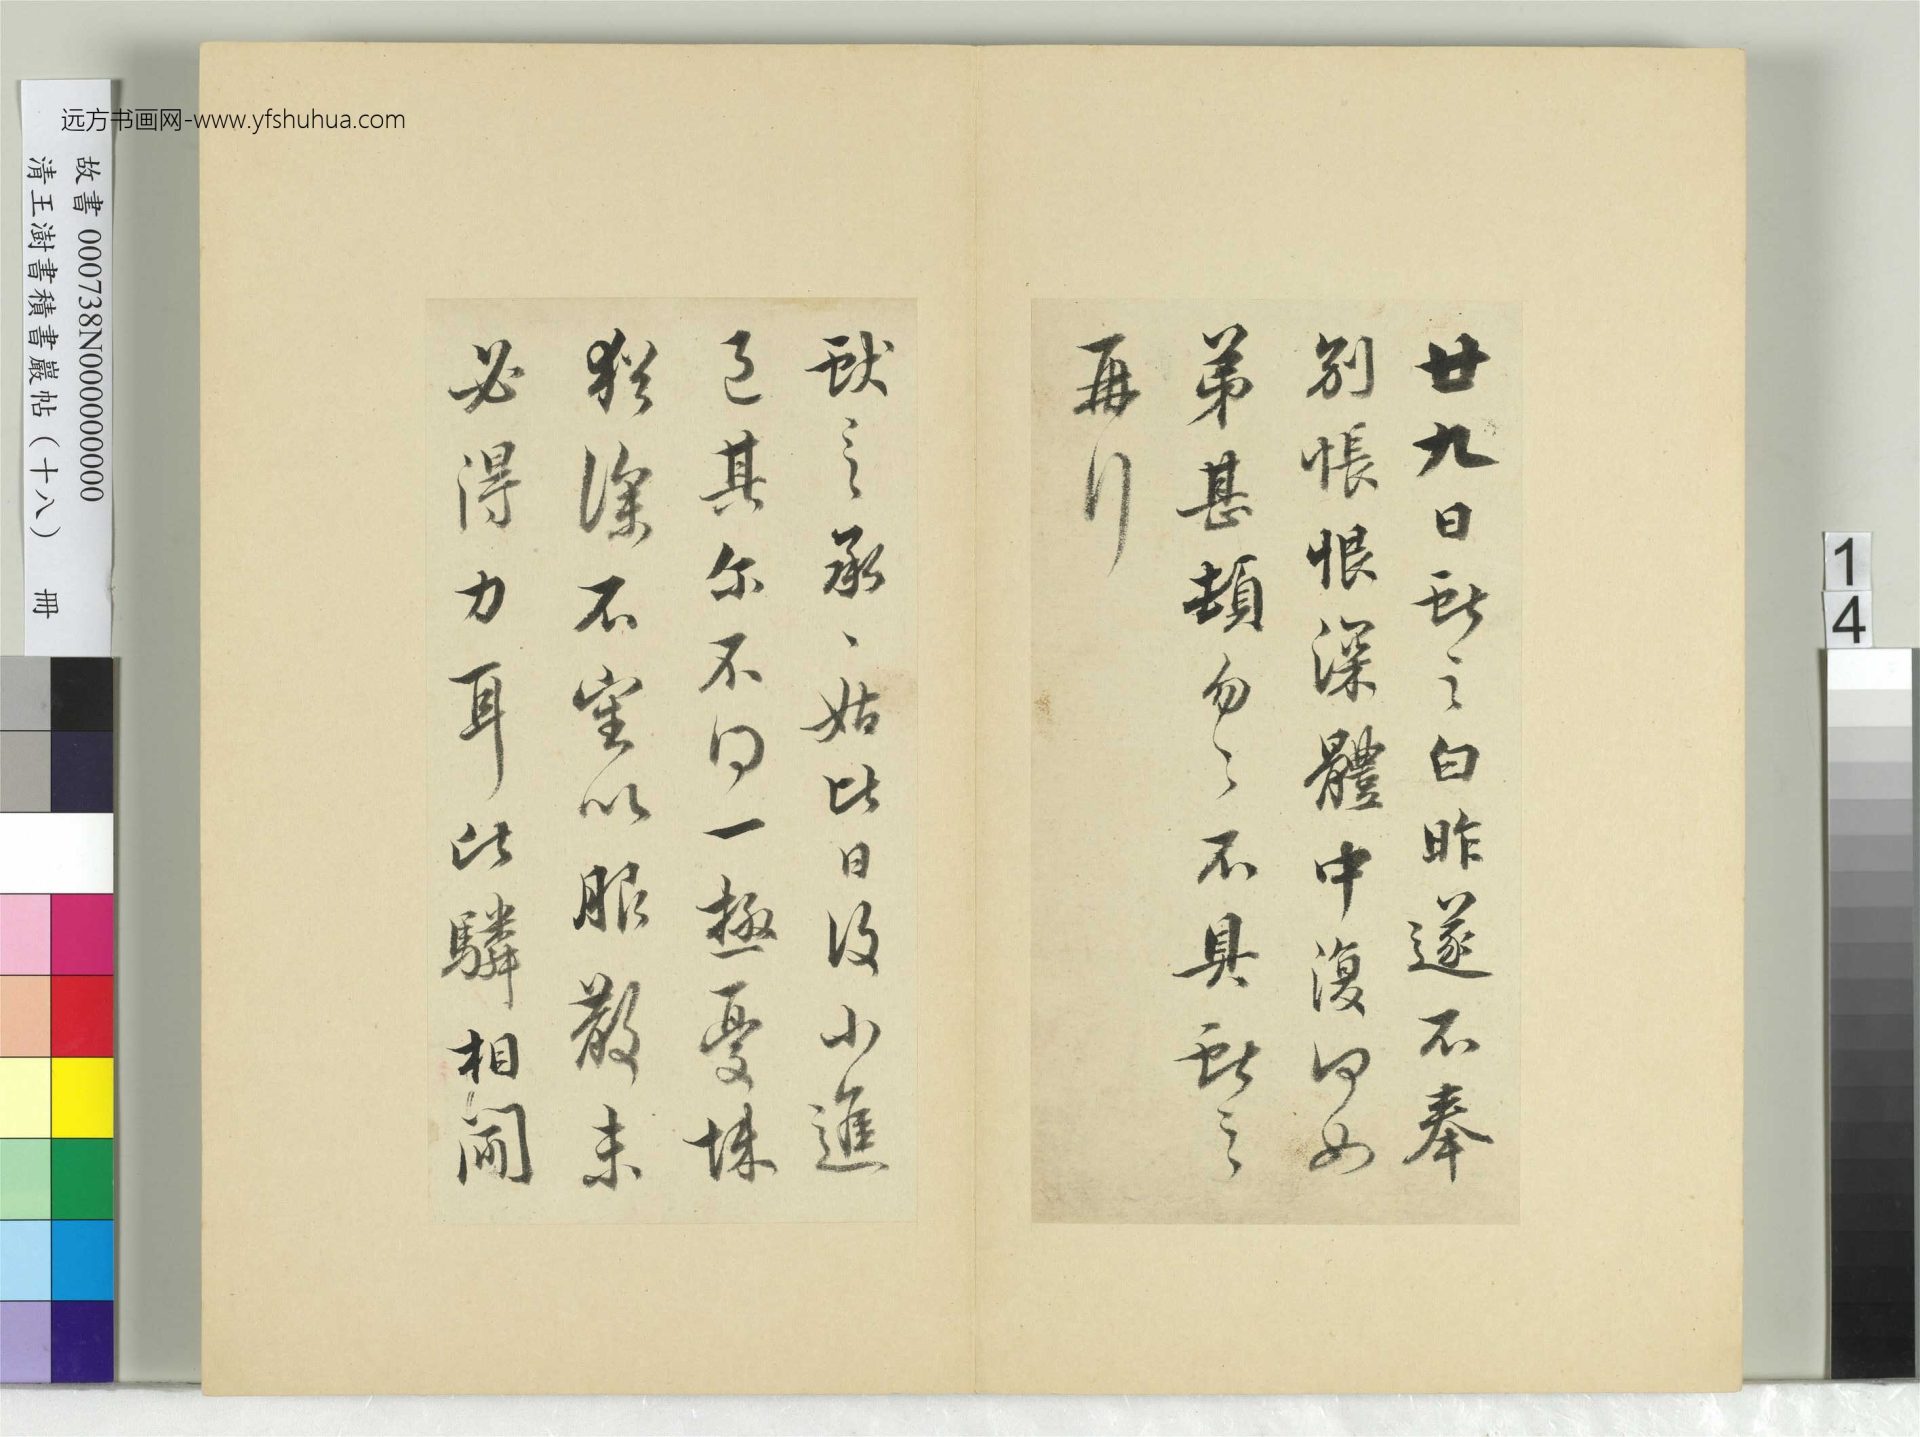 远方书画网-www.yfshuhua.com
故書 000738N000000000
清王澍書積書巖帖（十八） 冊
14
廿九日献之白昨遂不奉
别悵恨深體中復何如
弟甚頓勿々不具献之
再拜
献之承、姑比日復小進
已其尔不可一極憂悚
猶深不審以服散未
必得力耳比驎相聞